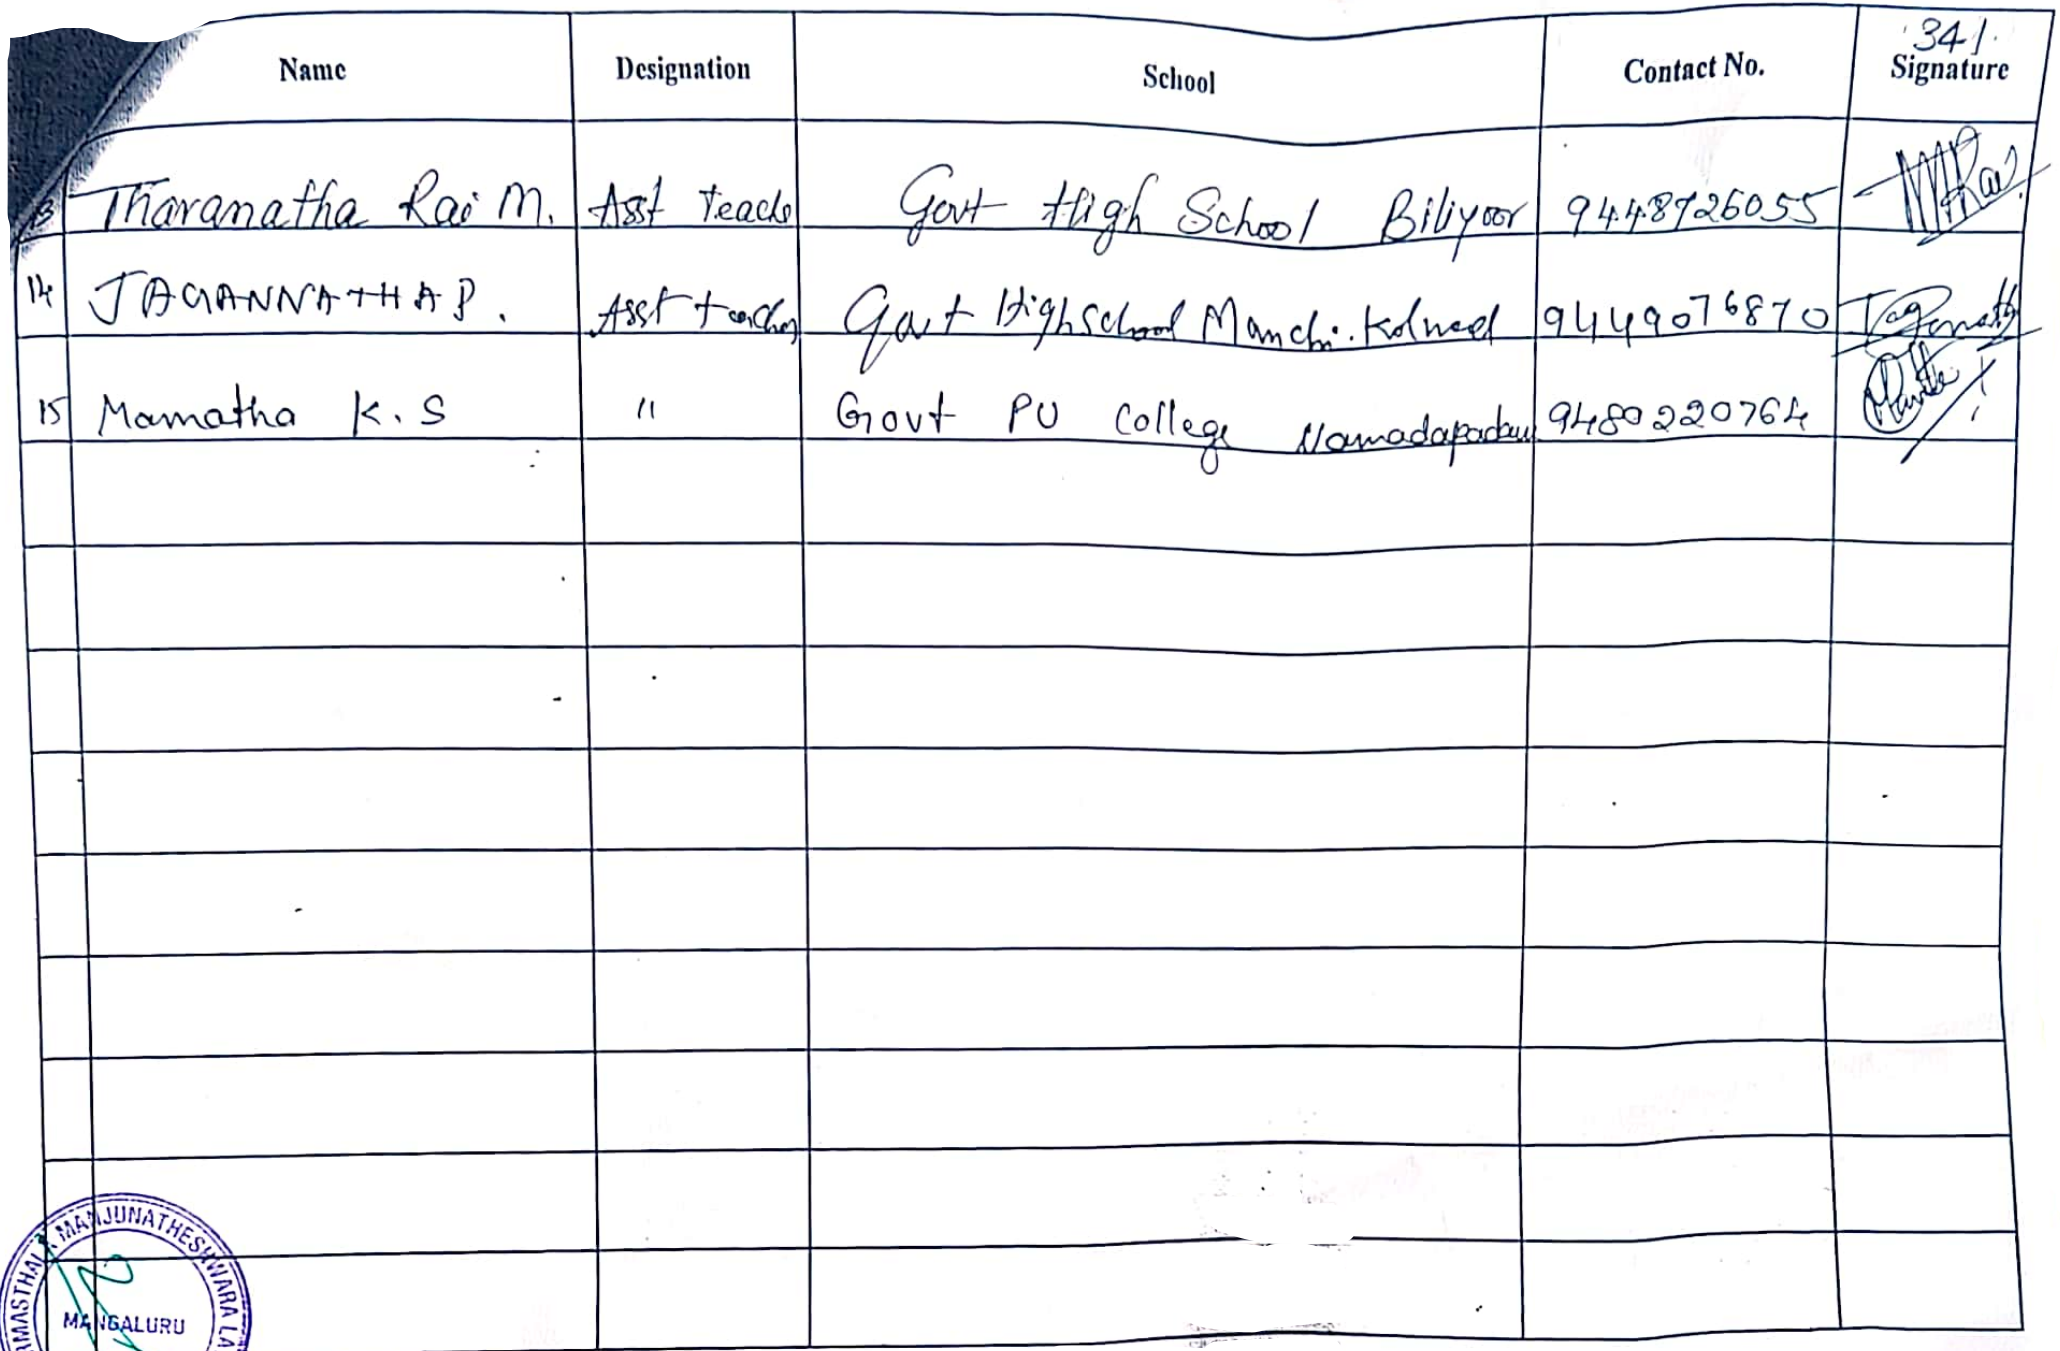 341.
Name Designation School Contact No. Signature
13 Tharanatha Rai M. Asst Teache Govt High School Biliyoor 9448726055 Rai
14 JAGANNATHA P. Asst teacher Govt High school Manchi. Kolnad 9449076870
15 Mamatha K.S " Govt PU College Vamadapadavu 9480220764
MANJUNATHESHWARA LA
MANGALURU